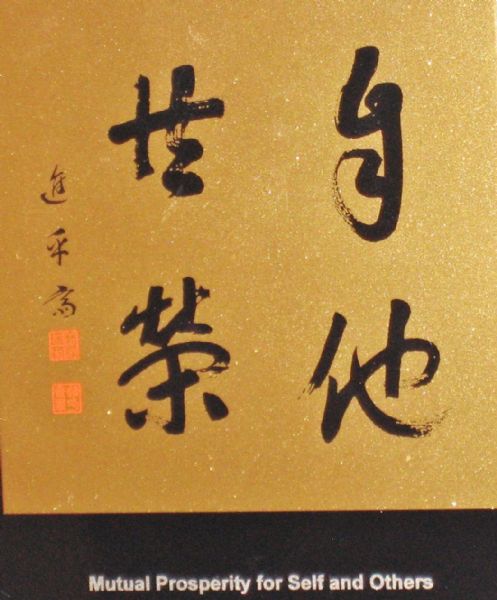 自他
共栄
進乎斎
Mutual Prosperity for Self and Others